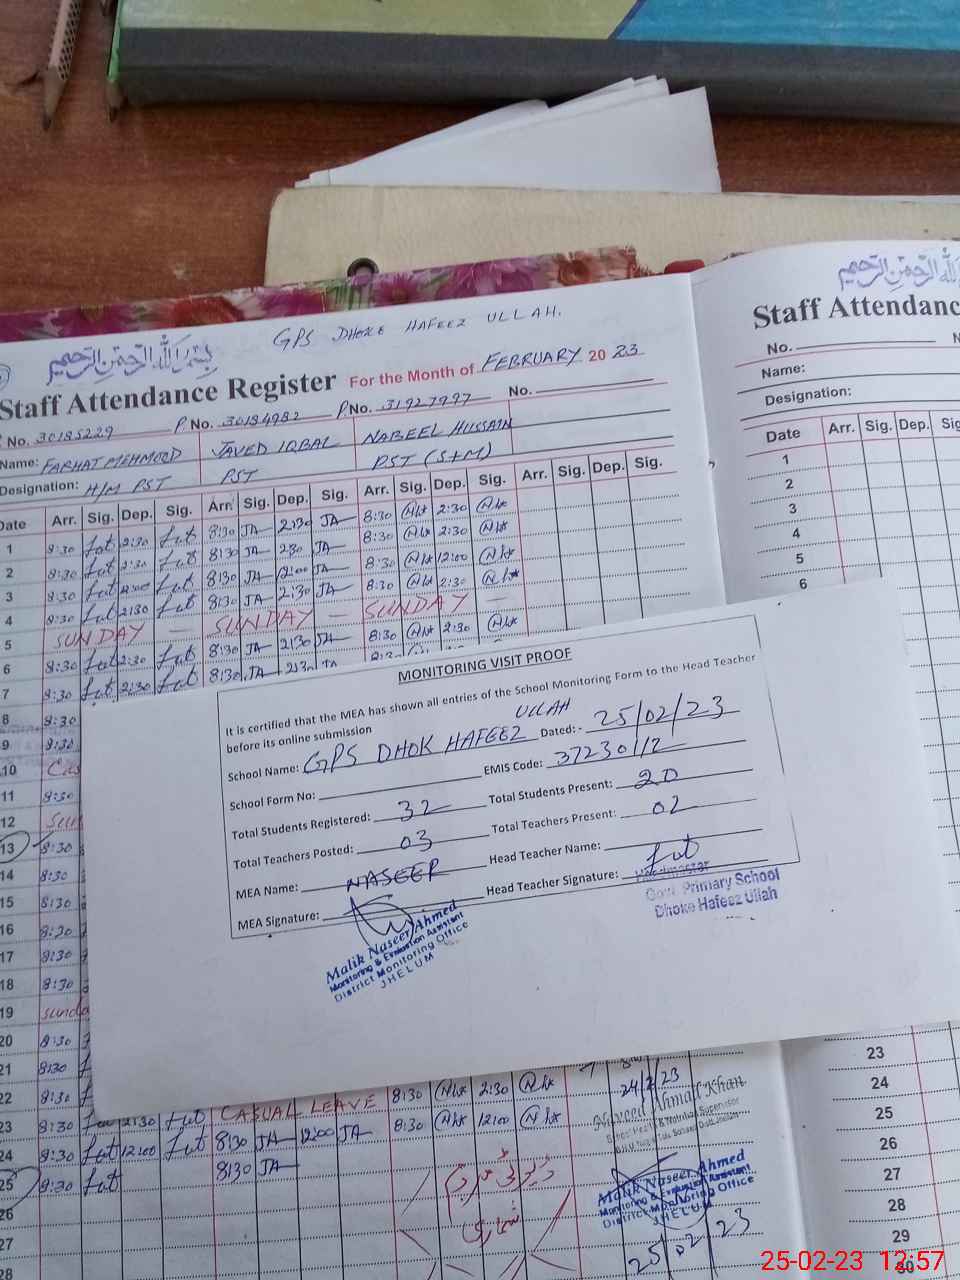 بسم الله الرحمن الرحيم
GPS DHOKE HAFEEZ ULLAH.
Staff Attendance Register For the Month of FEBRUARY 2023
No. 30185229 P.No. 30184982 P.No. 31927997 No.
Name: FARHAT MEHMOOD JAVED IQBAL NABEEL HUSSAIN
Designation: H/M PST PST PST (S+M)
Date Arr. Sig. Dep. Sig. Arr. Sig. Dep. Sig. Arr. Sig. Dep. Sig. Arr. Sig. Dep. Sig.
1 8:30 2:30 8:30 JA 2:30 JA 8:30 2:30
2 8:30 2:30 8:30 JA 2:30 JA 8:30 2:30
3 8:30 12:00 8:30 JA 12:00 JA 8:30 12:00
4 8:30 2:30 8:30 JA 2:30 JA 8:30 2:30
5 SUNDAY — SUNDAY — SUNDAY —
6 8:30 2:30 8:30 JA 2:30 JA 8:30 2:30
7 8:30 2:30 8:30 JA 2:30
8 8:30
9 8:30
10 Cas
11 8:30
12 Sun
13 8:30
14 8:30
15 8:30
16 8:30
17 8:30
18 8:30
19 Sunda
20 8:30
21 8:30
22 8:30 8:30 2:30
23 8:30 2:30 CASUAL LEAVE 8:30 12:00
24 8:30 12:00 8:30 JA 12:00 JA
25 8:30 8:30 JA
26
27
28
24/2/23
Naveed Ahmad Khan
School Health & Nutrition Supervisor
Malik Naseer Ahmed
Monitoring & Evaluation Assistant
District Monitoring Office
JHELUM
25/02/23
MONITORING VISIT PROOF
It is certified that the MEA has shown all entries of the School Monitoring Form to the Head Teacher
before its online submission
School Name: GPS DHOK HAFEEZ ULLAH Dated:- 25/02/23
School Form No: EMIS Code: 37230112
Total Students Registered: 32 Total Students Present: 20
Total Teachers Posted: 03 Total Teachers Present: 02
MEA Name: NASEER Head Teacher Name:
MEA Signature: Head Teacher Signature:
Malik Naseer Ahmed
Monitoring & Evaluation Assistant
District Monitoring Office
JHELUM
Headmaster
Govt. Primary School
Dhoke Hafeez Ullah
بسم الله الرحمن الرحيم
Staff Attendance
No.
Name:
Designation:
Date Arr. Sig. Dep. Sig
1
2
3
4
5
6
23
24
25
26
27
28
29
30
25-02-23 12:57